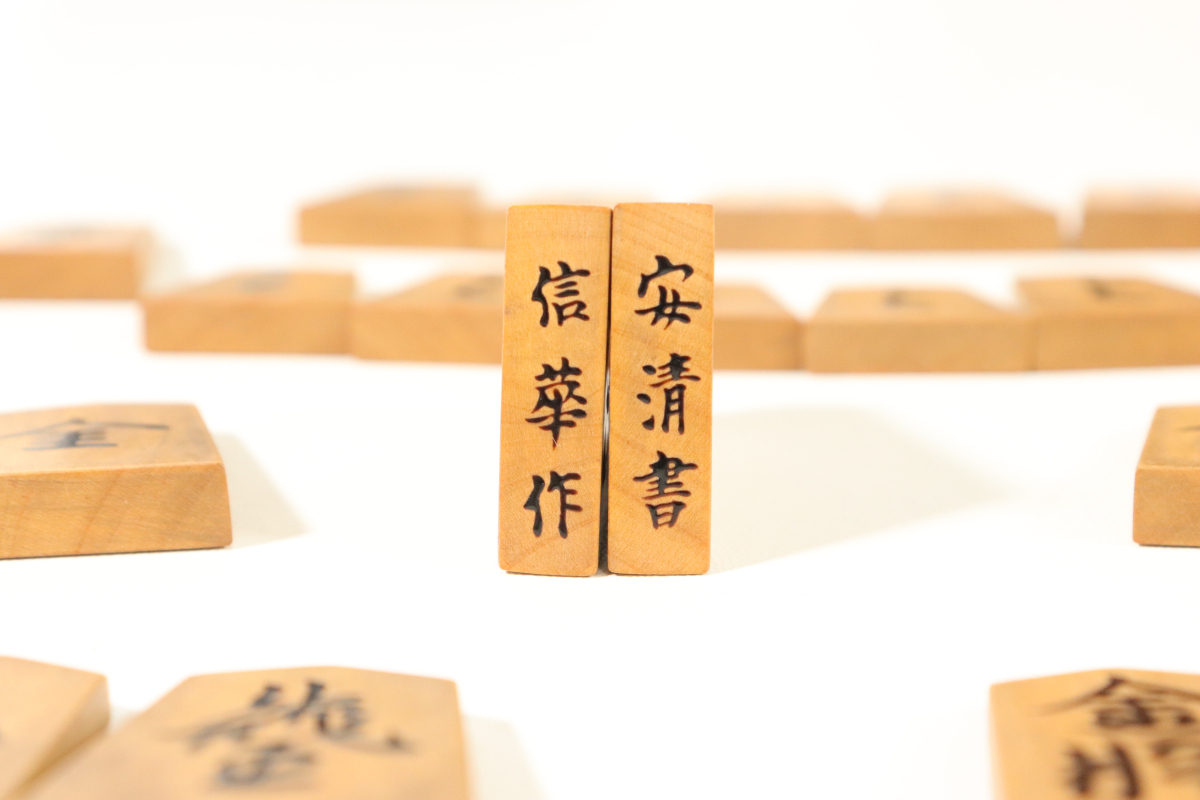 安清書
信華作
金